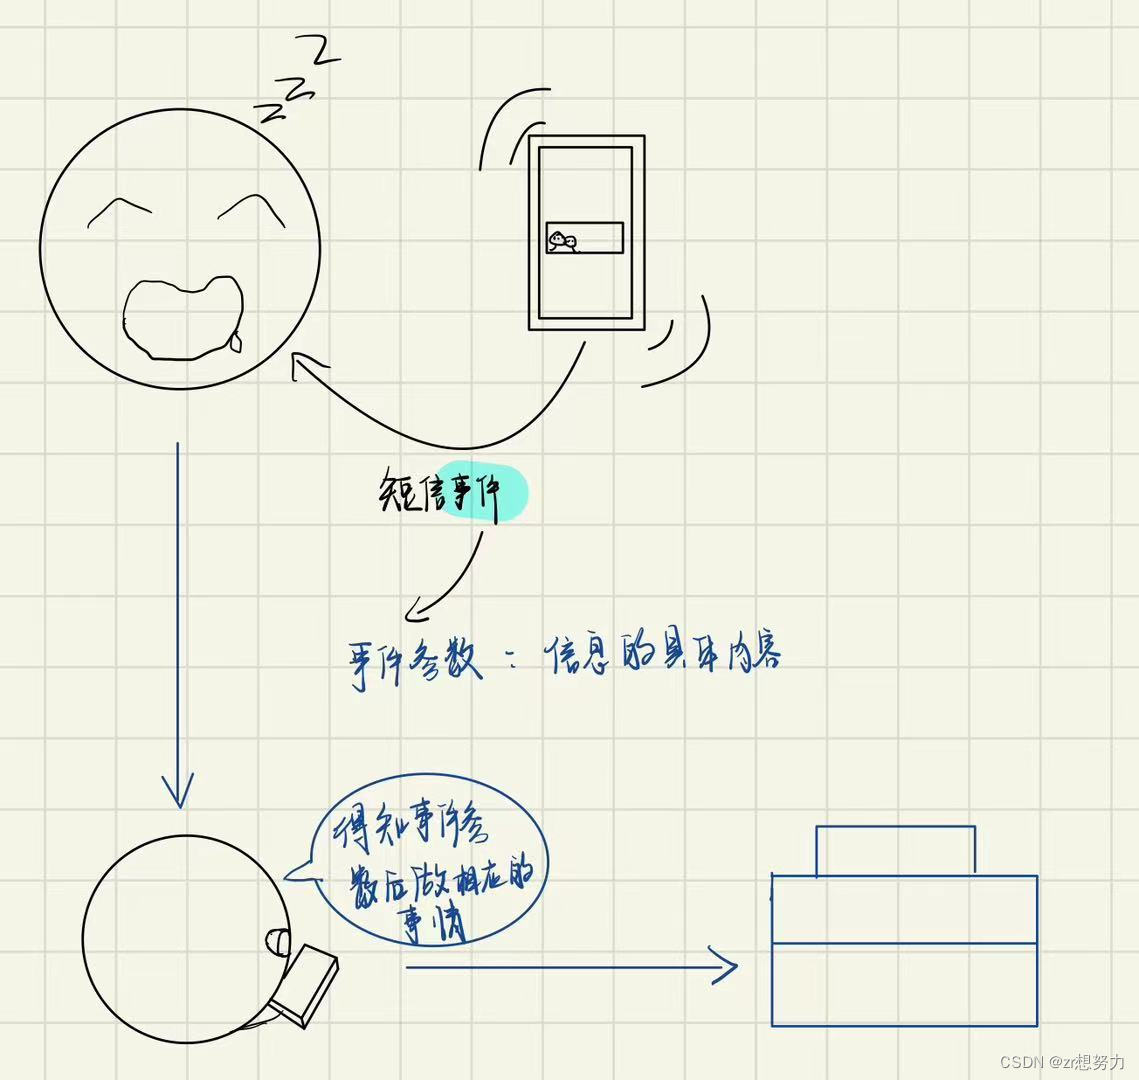 z
z
z
短信事件
事件参数：信息的具体内容
得知事件参
数后做相应的
事情
CSDN @zr想努力